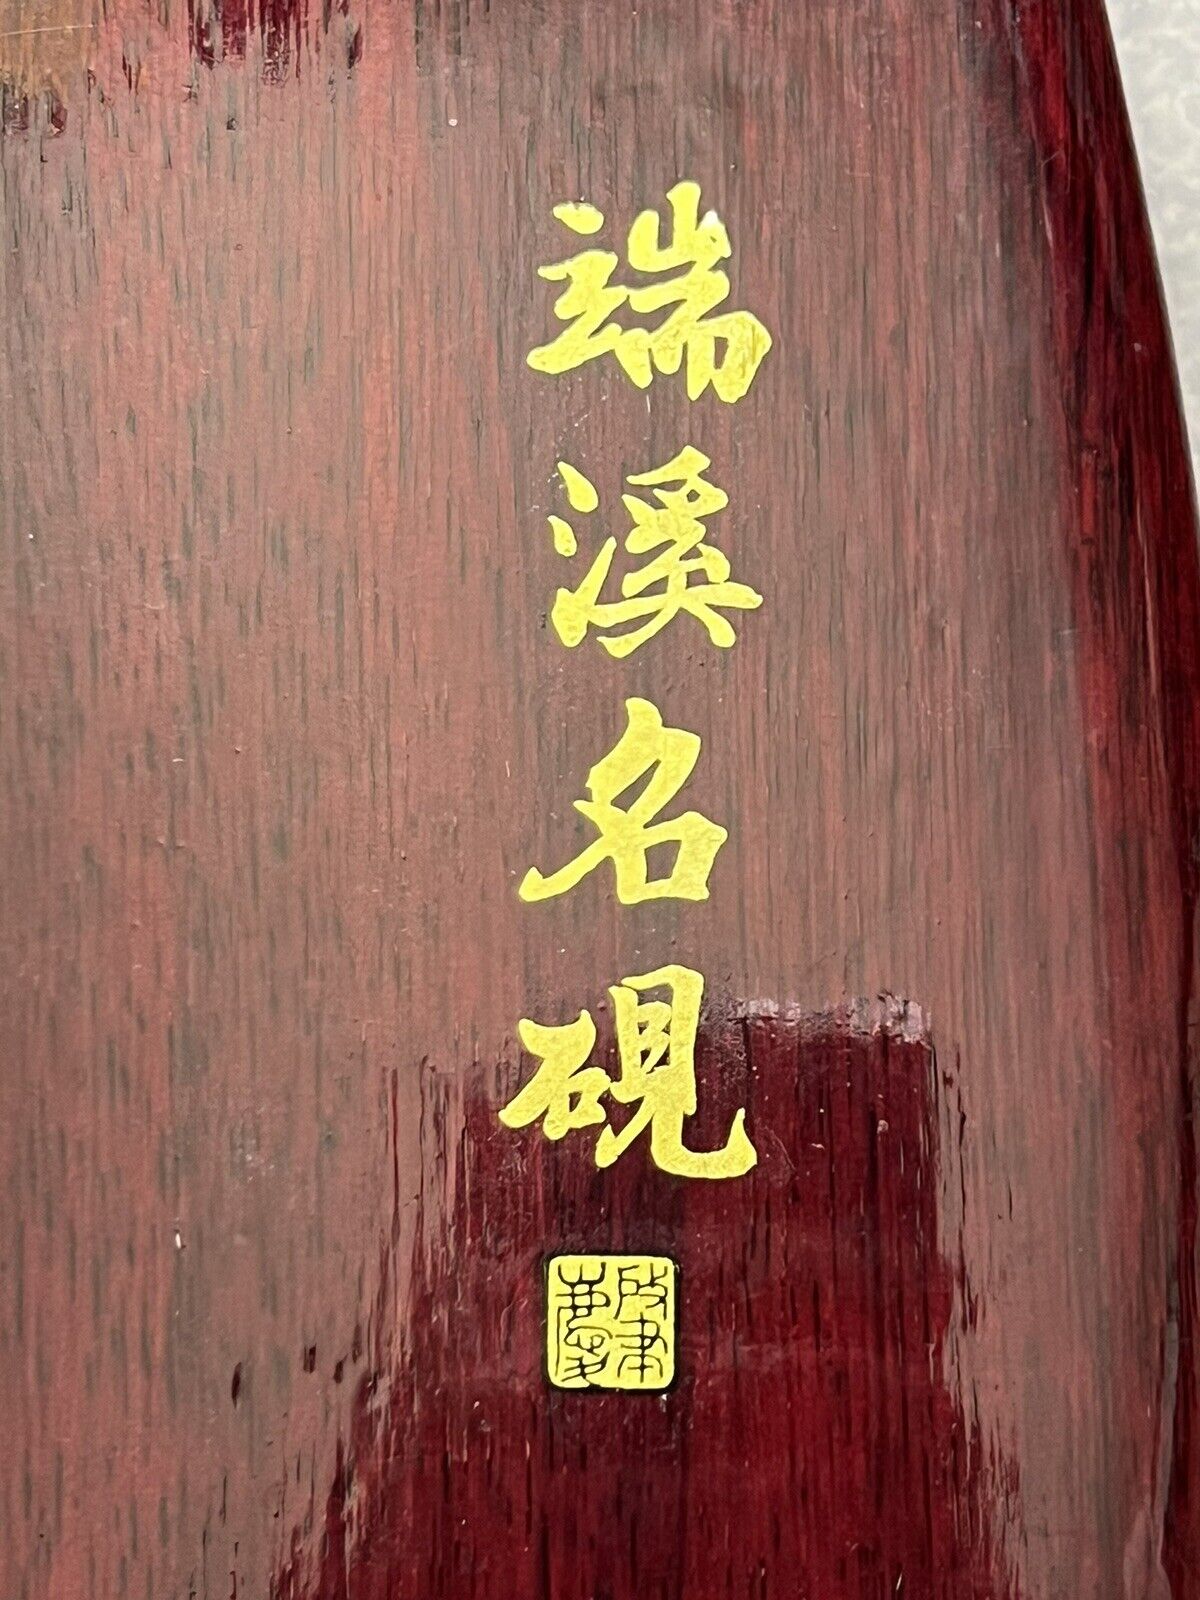 端溪名硯